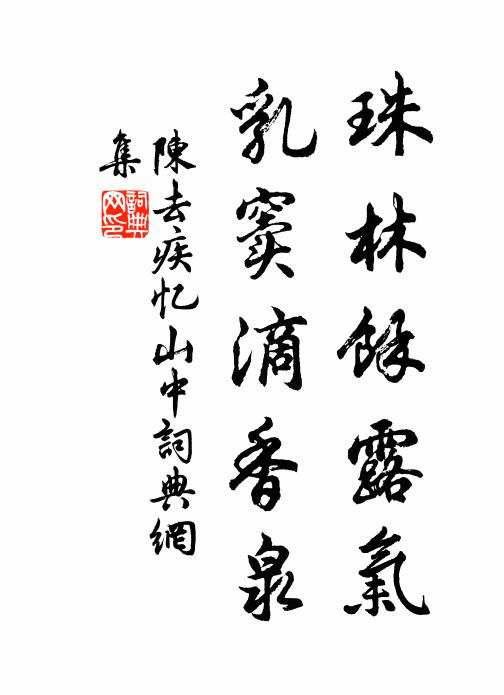 珠林餘露氣
乳竇滴香泉
陳去疾忆山中詞典網
集
詞典网印